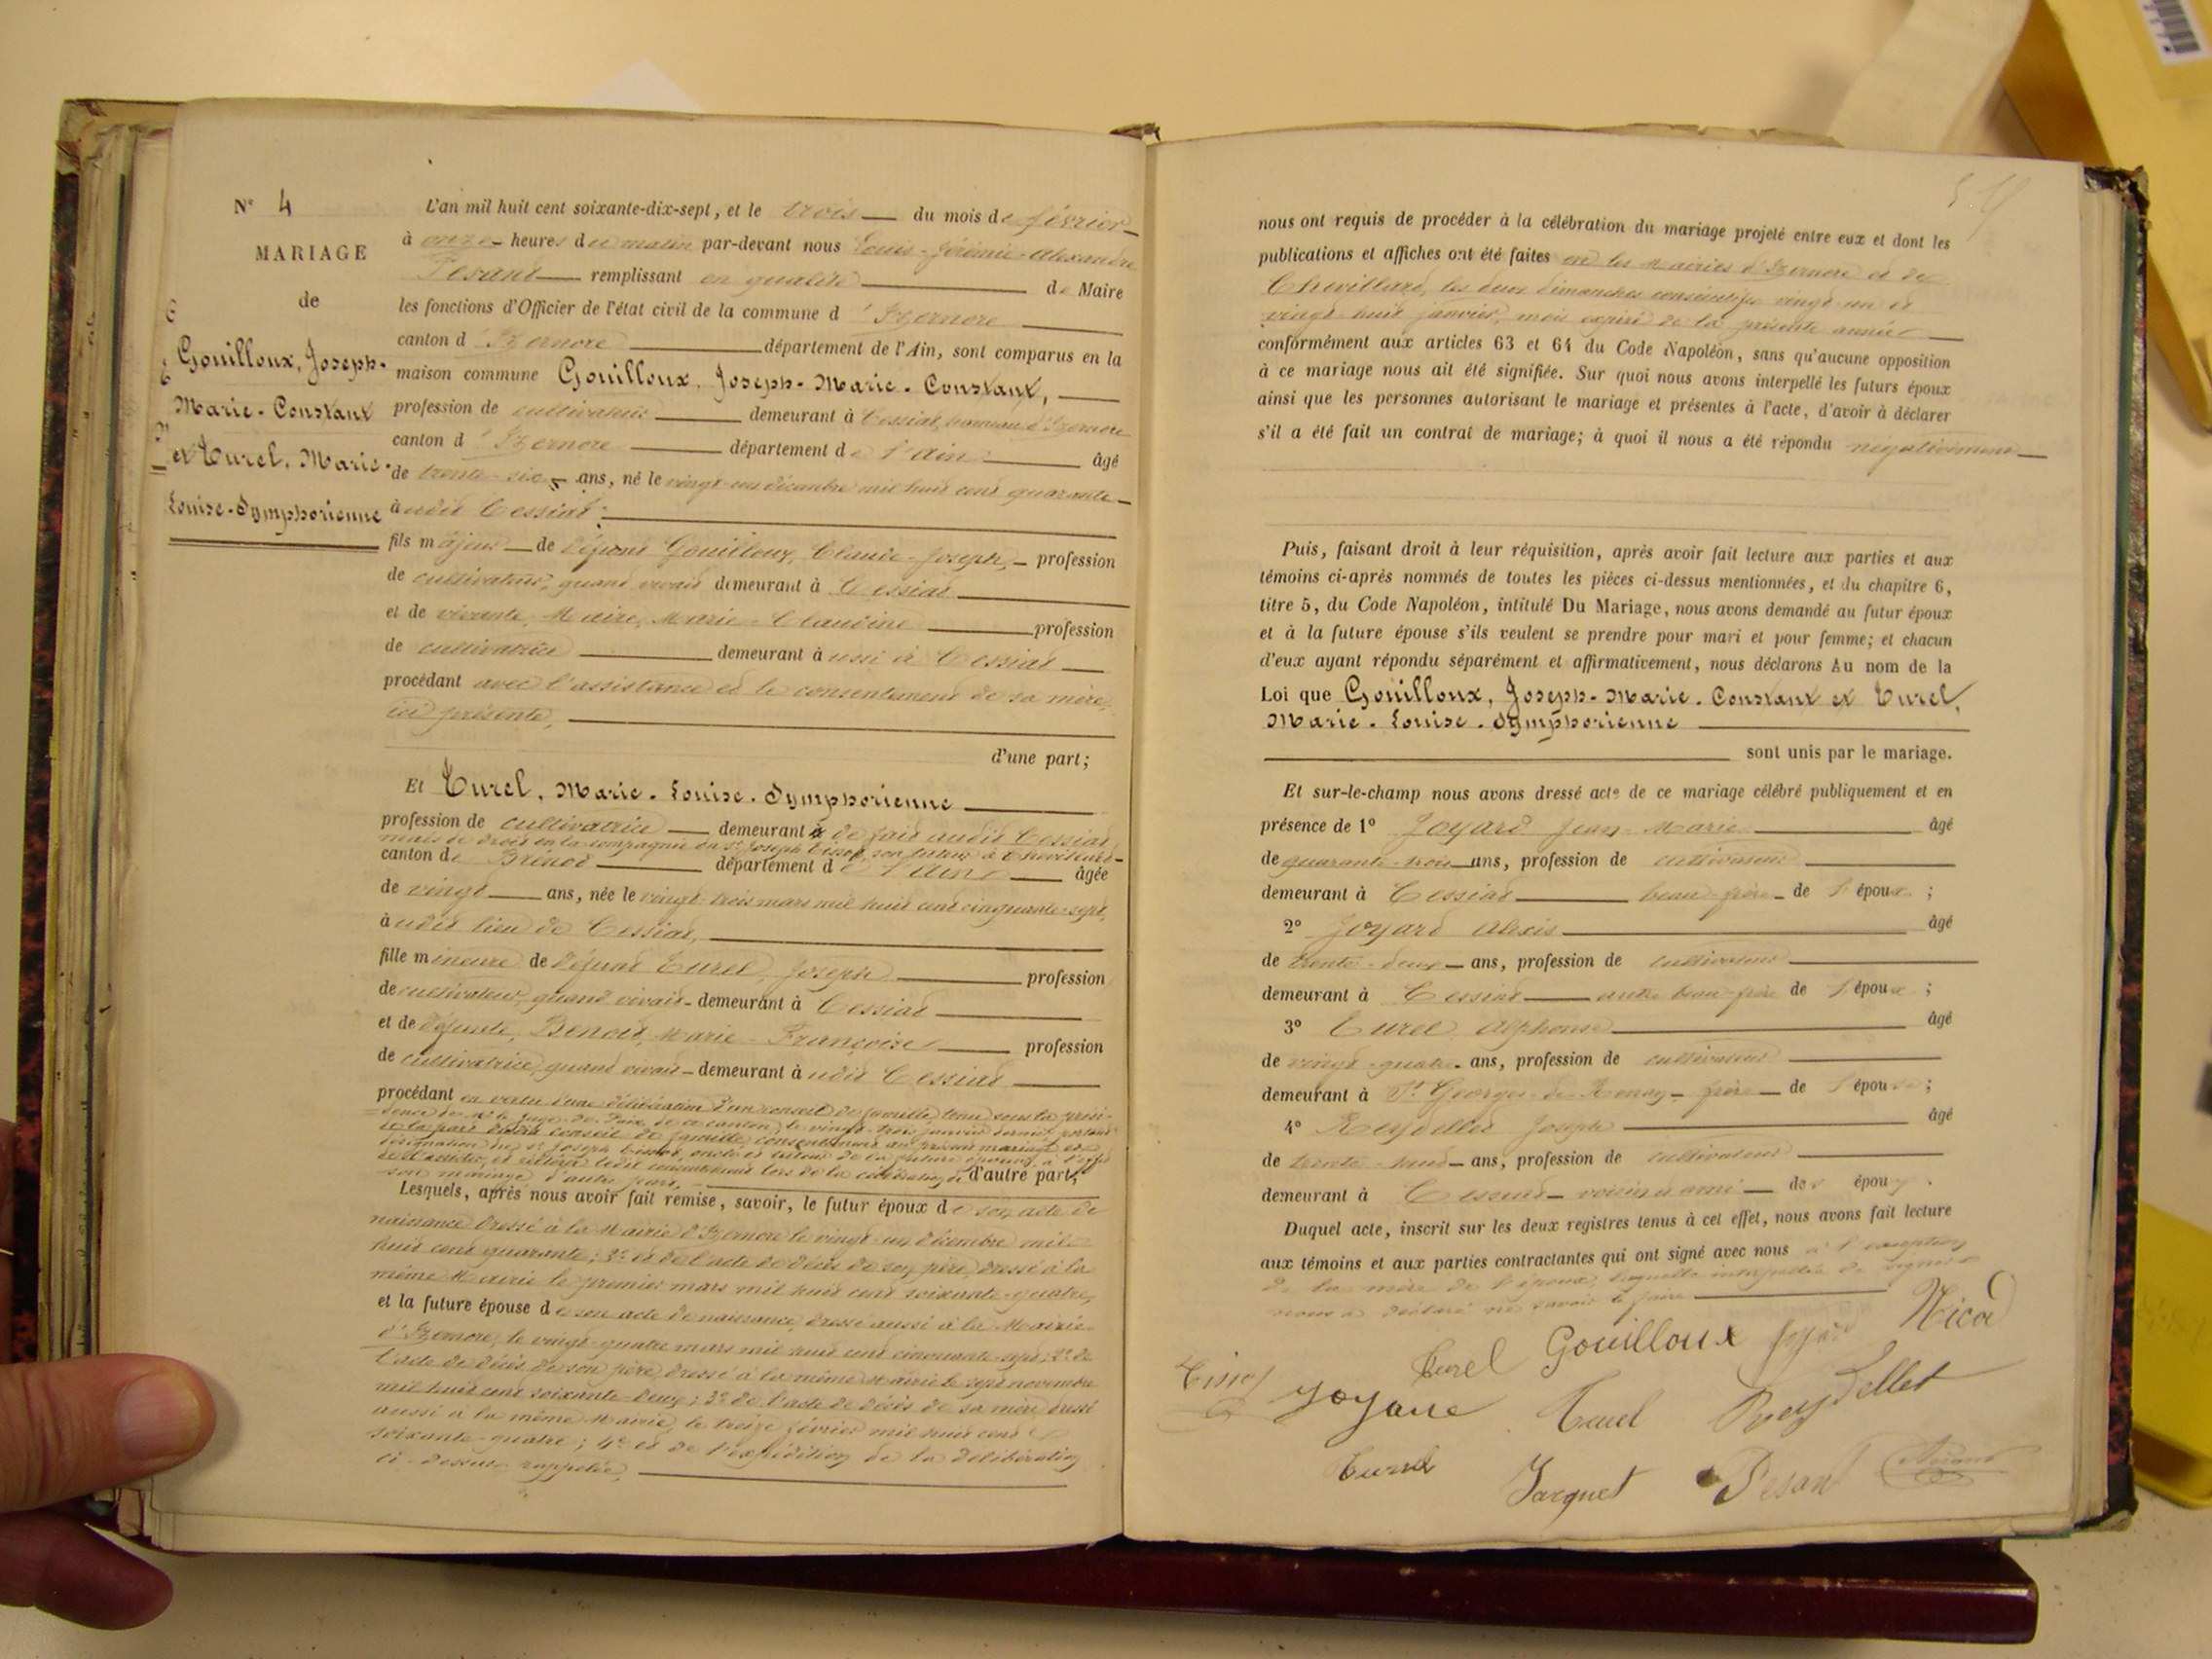 N° 4
MARIAGE
de
Gouilloux, Joseph-
Marie-Constant
et Turel, Marie-
Louise-Symphorienne
L'an mil huit cent soixante-dix-sept, et le trois du mois de février
à onze heures du matin par-devant nous Louis-Jérémie-Alexandre
Pesant remplissant en qualité de Maire
les fonctions d'Officier de l'état civil de la commune d'Izernore
canton d'Izernore département de l'Ain, sont comparus en la
maison commune Gouilloux, Joseph-Marie-Constant,
profession de cultivateur demeurant à Cessiat, hameau d'Izernore
canton d'Izernore département de l'Ain âgé
de trente-six ans, né le vingt-un décembre mil huit cent quarante
audit Cessiat;
fils majeur de défunt Gouilloux, Claude-Joseph, profession
de cultivateur, quand vivait demeurant à Cessiat
et de vivante, Maire, Marie-Claudine profession
de cultivatrice demeurant aussi à Cessiat
procédant avec l'assistance et le consentement de sa mère,
ici présente,
d'une part;
Et Turel, Marie-Louise-Symphorienne
profession de cultivatrice demeurant de fait audit Cessiat
mais de droit en la compagnie du Sr Joseph Tissot, son tuteur à Chevillard
canton de Brénod département de l'Ain âgée
de vingt ans, née le vingt-trois mars mil huit cent cinquante-sept,
audit lieu de Cessiat,
fille mineure de défunt Turel, Joseph profession
de cultivateur, quand vivait demeurant à Cessiat
et de défunte, Benoit, Marie-Françoise profession
de cultivatrice, quand vivait demeurant audit Cessiat
procédant en vertu d'une délibération d'un conseil de famille, tenu sous la prési-
dence de Mr le Juge-de-Paix de ce canton, le vingt-trois janvier dernier, portant
de la part dudit conseil de famille, consentement au présent mariage et
désignation du Sr Joseph Tissot, oncle et tuteur de la future épouse, à l'effet
d'assister, et réitérer ledit consentement lors de la célébration de d'autre part;
son mariage d'autre part,
Lesquels, après nous avoir fait remise, savoir, le futur époux de son acte de
naissance dressé à la Mairie d'Izernore le vingt-un décembre mil
huit cent quarante; 2° et de l'acte de décès de son père, dressé à la
même Mairie le premier mars mil huit cent soixante-quatre,
et la future épouse de son acte de naissance, dressé aussi à la Mairie
d'Izernore, le vingt-quatre mars mil huit cent cinquante-sept; 2° de
l'acte de décès de son père, dressé à la même Mairie le sept novembre
mil huit cent soixante-deux; 3° de l'acte de décès de sa mère dressé
aussi à la même Mairie, le treize février mil huit cent
soixante-quatre; 4° et de l'expédition de la délibération
ci-dessus rappelée,
nous ont requis de procéder à la célébration du mariage projeté entre eux et dont les
publications et affiches ont été faites en les Mairies d'Izernore et de
Chevillard, les deux dimanches consécutifs vingt-un et
vingt-huit janvier, mois expiré de la présente année
conformément aux articles 63 et 64 du Code Napoléon, sans qu'aucune opposition
à ce mariage nous ait été signifiée. Sur quoi nous avons interpellé les futurs époux
ainsi que les personnes autorisant le mariage et présentes à l'acte, d'avoir à déclarer
s'il a été fait un contrat de mariage; à quoi il nous a été répondu négativement
Puis, faisant droit à leur réquisition, après avoir fait lecture aux parties et aux
témoins ci-après nommés de toutes les pièces ci-dessus mentionnées, et du chapitre 6,
titre 5, du Code Napoléon, intitulé Du Mariage, nous avons demandé au futur époux
et à la future épouse s'ils veulent se prendre pour mari et pour femme; et chacun
d'eux ayant répondu séparément et affirmativement, nous déclarons Au nom de la
Loi que Gouilloux, Joseph-Marie-Constant et Turel,
Marie-Louise-Symphorienne
sont unis par le mariage.
Et sur-le-champ nous avons dressé acte de ce mariage célébré publiquement et en
présence de 1° Joyard Jean-Marie âgé
de quarante-trois ans, profession de cultivateur
demeurant à Cessiat beau-frère de l'époux;
2° Joyard Alexis âgé
de trente-deux ans, profession de cultivateur
demeurant à Cessiat autre beau-frère de l'époux;
3° Turel Alphonse âgé
de vingt-quatre ans, profession de cultivateur
demeurant à St Georges-de-Renay frère de l'épouse;
4° Reydellet Joseph âgé
de trente-huit ans, profession de cultivateur
demeurant à Cessiat voisin et ami des époux.
Duquel acte, inscrit sur les deux registres tenus à cet effet, nous avons fait lecture
aux témoins et aux parties contractantes qui ont signé avec nous à l'exception
de la mère de l'époux, laquelle interpellée de signer
nous a déclaré ne savoir le faire
Tissot Turel Gouilloux Joyard Nicod
Joyard Turel Reydellet
Turel Jacquet Pesant